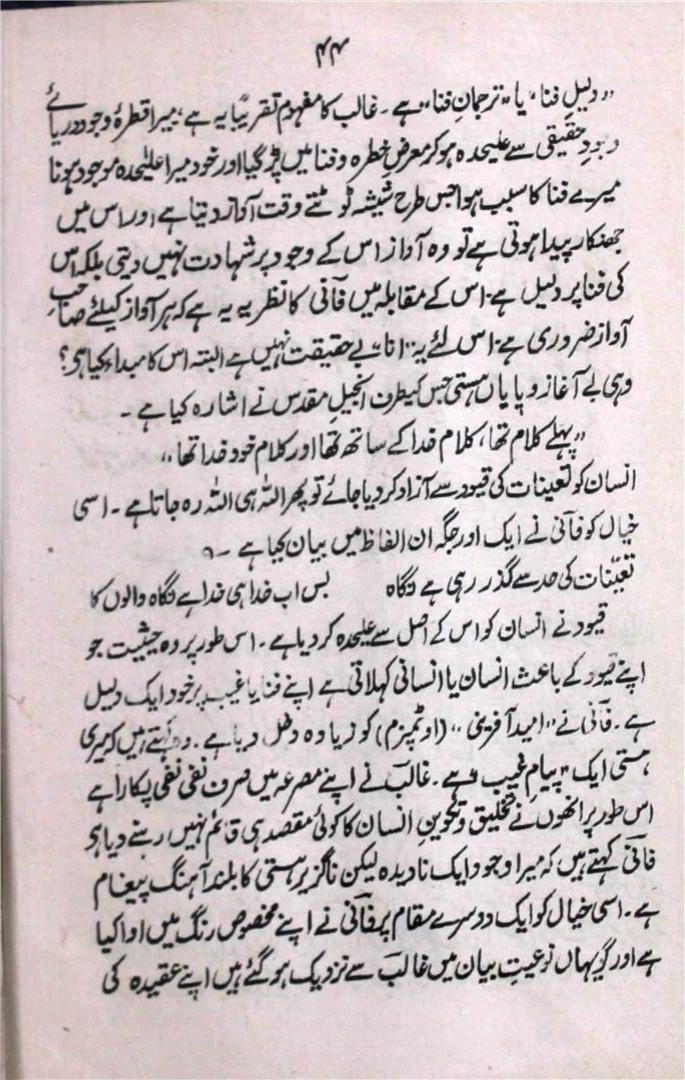 ۴۴
”دلیلِ فنا“ یا ”ترجمانِ فنا“ ہے۔ غالب کا مفہوم تقریباً یہ ہے، میرا قطرۂ وجود دریائے
وجودِ حقیقی سے علیحدہ ہو کر معرضِ خطرہ و فنا میں پڑ گیا اور خود میرا علیحدہ موجود ہونا
میرے فنا کا سبب ہوا جس طرح شیشہ ٹوٹتے وقت آواز دیتا ہے اور اس میں
جھنکار پیدا ہوتی ہے تو وہ آواز اس کے وجود پر شہادت نہیں دیتی بلکہ اس
کی فنا پر دلیل ہے۔ اس کے مقابلہ میں فانی کا نظریہ یہ ہے کہ ہر آواز کیلئے صاحبِ
آواز ضروری ہے۔ اس لئے یہ ”انا“ بے حقیقت نہیں ہے البتہ اس کا مبداء کیا ہو؟
وہی بے آغاز و پایاں ہستی جس کیطرف انجیلِ مقدس نے اشارہ کیا ہے۔
”پہلے کلام تھا، کلام خدا کے ساتھ تھا اور کلام خود خدا تھا“
انسان کو تعینات کی قیود سے آزاد کر دیا جائے تو پھر اللہ ہی اللہ رہ جاتا ہے۔ اسی
خیال کو فانی نے ایک اور جگہ ان الفاظ میں بیان کیا ہے۔
تعیّنات کی حد سے گذر رہی ہے نگاہ بس اب خدا ہی خدا ہے نگاہ والوں کا
قیود نے انسان کو اس کے اصل سے علیحدہ کر دیا ہے۔ اس طور پر وہ حیثیت جو
اپنے قیود کے باعث انسان یا انسانی کہلاتی ہے اپنے فنا یا غیب پر خود ایک دلیل
ہے۔ فانی نے ”امید آفرینی“ (اوٹمپزم) کو زیادہ دخل دیا ہے۔ وہ کہتے ہیں کہ میری
ہستی ایک ”پیامِ غیب“ ہے۔ غالب نے اپنے مصرعہ میں صرف نفی نفی پکارا ہے
اس طور پر انھوں نے تخلیق و تکوینِ انسان کا کوئی مقصد ہی قائم نہیں رہنے دیا ہو
فانی کہتے ہیں کہ میرا وجود ایک نادیدہ لیکن ناگزیر ہستی کا بلند آہنگ پیغام
ہے۔ اسی خیال کو ایک دوسرے مقام پر فانی نے اپنے مخصوص رنگ میں ادا کیا
ہے اور گو یہاں نوعیتِ بیان میں غالب سے نزدیک ہو گئے ہیں اپنے عقیدہ کی